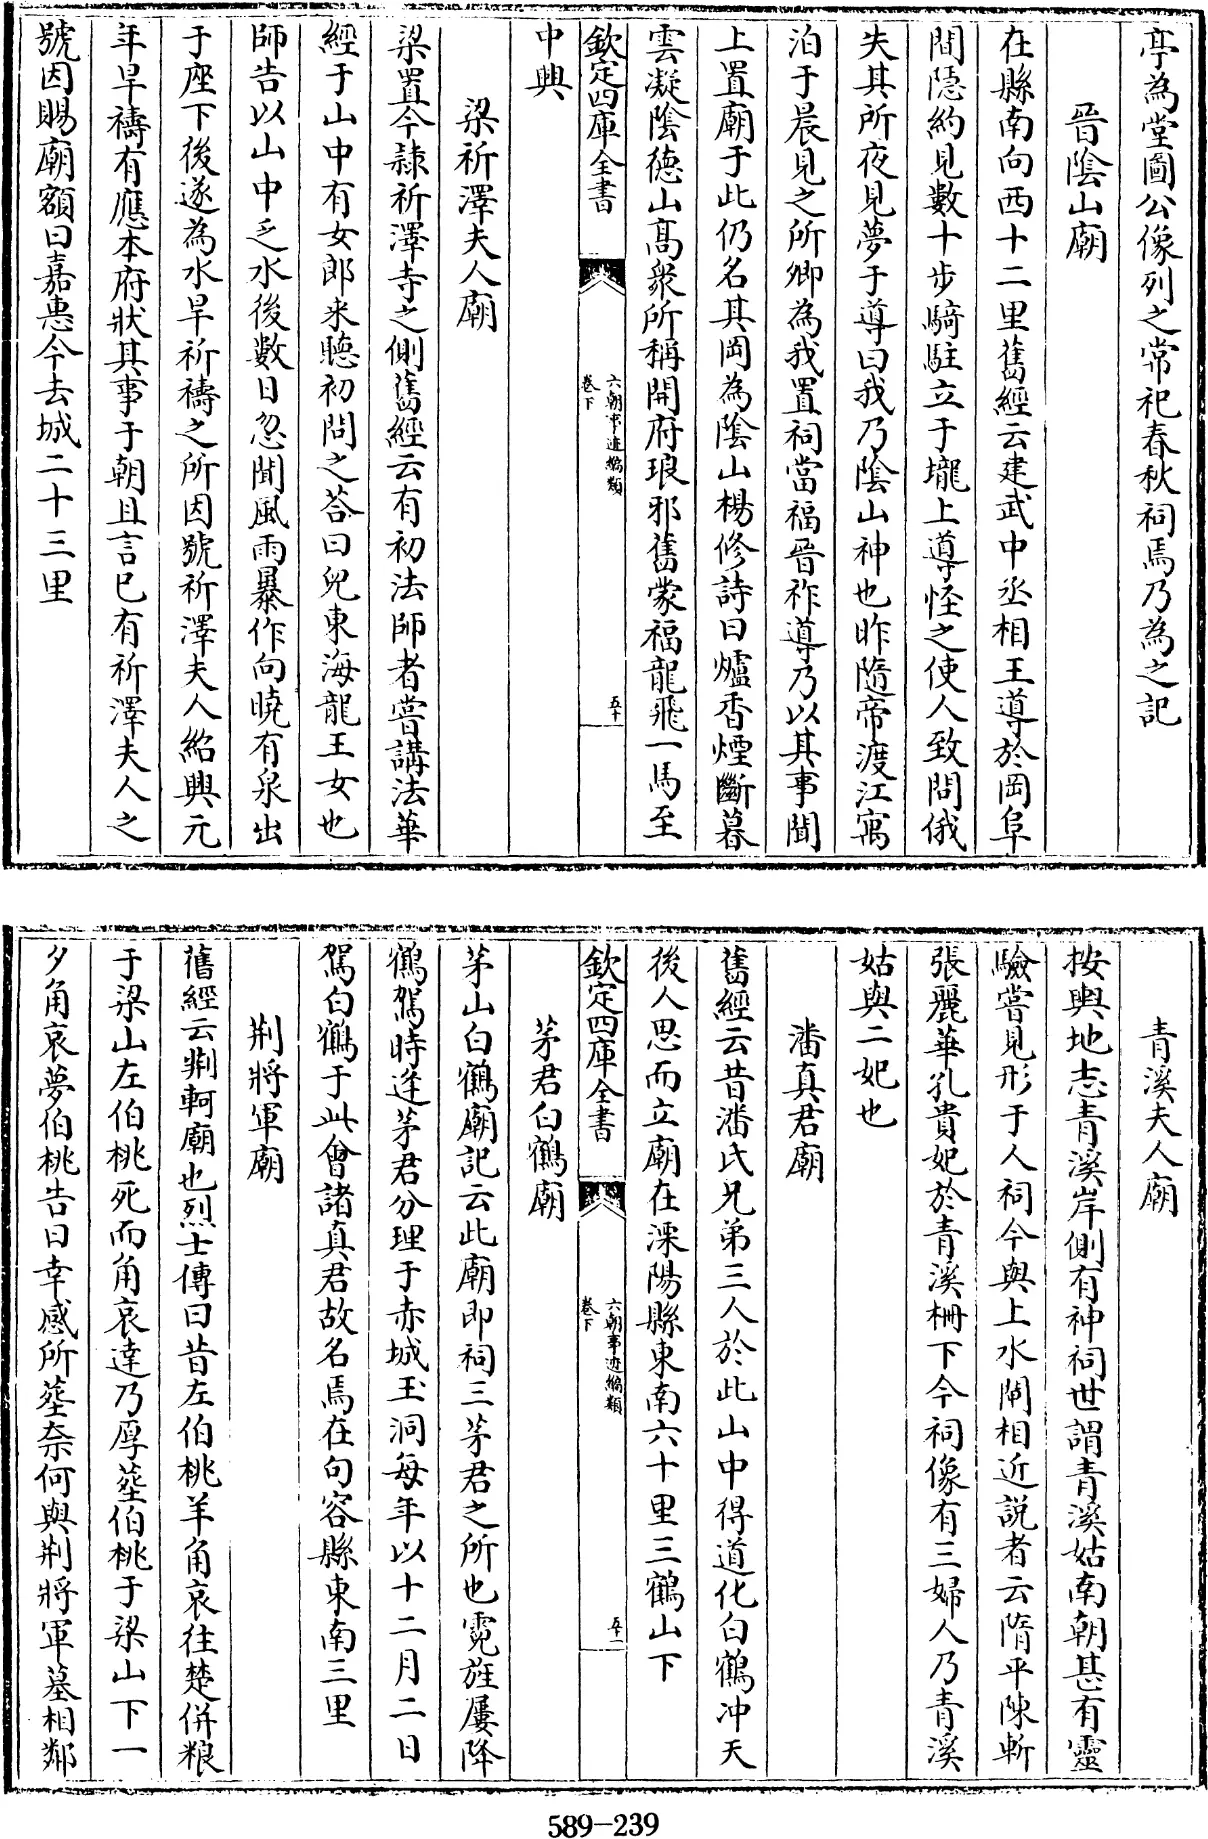 亭為堂圖公像列之常祀春秋祠焉乃為之記
晉陰山廟
在縣南向西十二里舊經云建武中丞相王導於岡阜
間隱約見數十步騎駐立于壠上導怪之使人致問俄
失其所夜見夢于導曰我乃陰山神也昨隨帝渡江寓
泊于晨見之所卿為我置祠當福晉祚導乃以其事聞
上置廟于此仍名其岡為陰山楊修詩曰爐香煙斷暮
雲凝陰德山高衆所稱開府琅邪舊蒙福龍飛一馬至
欽定四庫全書
六朝事迹編類
卷下
五十
中興
梁祈澤夫人廟
梁置今隷祈澤寺之側舊經云有初法師者嘗講法華
經于山中有女郎來聽初問之荅曰兒東海龍王女也
師告以山中乏水後數日忽聞風雨暴作向曉有泉出
于座下後遂為水旱祈禱之所因號祈澤夫人紹興元
年旱禱有應本府狀其事于朝且言已有祈澤夫人之
號因賜廟額曰嘉惠今去城二十三里
青溪夫人廟
按輿地志青溪岸側有神祠世謂青溪姑南朝甚有靈
驗嘗見形于人祠今與上水閘相近説者云隋平陳斬
張麗華孔貴妃於青溪柵下今祠像有三婦人乃青溪
姑與二妃也
潘真君廟
舊經云昔潘氏兄弟三人於此山中得道化白鶴冲天
後人思而立廟在溧陽縣東南六十里三鶴山下
欽定四庫全書
六朝事迹編類
卷下
五十一
茅君白鶴廟
茅山白鶴廟記云此廟即祠三茅君之所也霓旌屢降
鶴駕時逢茅君分理于赤城玉洞每年以十二月二日
駕白鶴于此會諸真君故名焉在句容縣東南三里
荆將軍廟
舊經云荆軻廟也烈士傳曰昔左伯桃羊角哀往楚併粮
于梁山左伯桃死而角哀達乃厚塟伯桃于梁山下一
夕角哀夢伯桃告曰幸感所塟奈何與荆將軍墓相鄰
589-239